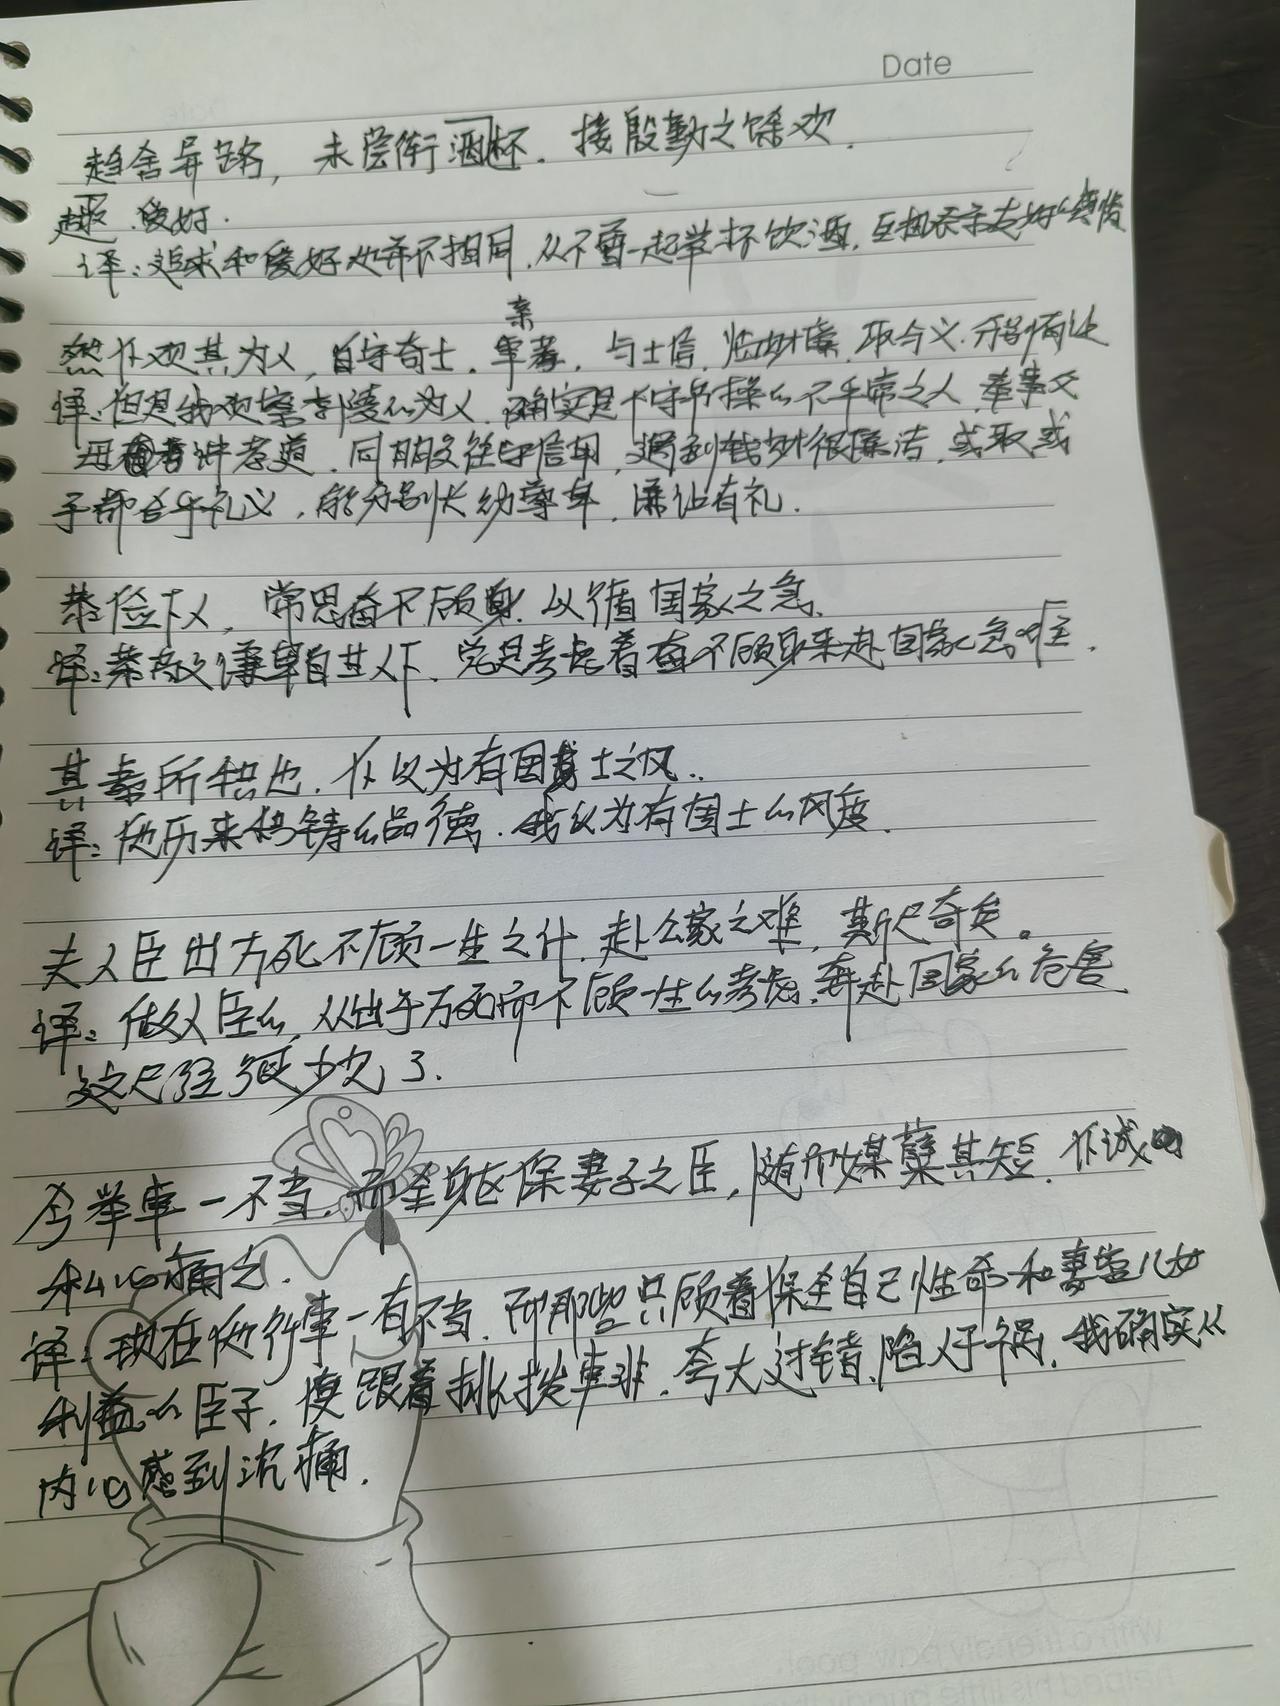 Date
趋舍异路，未尝衔酒杯．接殷勤之馀欢．
趣．爱好．
译：追求和爱好也并不相同，从不曾一起举杯饮酒，互相表示友好
亲
然仆观其为人，自守奇士，事孝，与士信，临财廉，取与义．分别有让
译：但是我观察李陵的为人．确实是个守节操的不平常之人，奉事父
母讲孝道，同朋友往守信用，遇到钱财很廉洁，或取或
予都合乎礼义，能分别长幼尊卑，谦让有礼．
恭俭下人，常思奋不顾身．以徇国家之急．
译：恭敬谦卑自甘人下、总是考虑着奋不顾身来赴国家急难．
其素所积也，仆以为有国士之风．
译：他历来积铸的品德．我以为有国士的风度．
夫人臣出万死不顾一生之计，赴公家之难，斯已奇矣。
译：做人臣的，从出于万死而不顾一生的考虑，奔赴国家的危害
这已经很少见了．
今举事一不当，而全躯保妻子之臣，随而媒孽其短．仆诚
私心痛之．
译：现在他行事一有不当，而那些只顾着保全自己性命和妻室儿女
利益的臣子，便跟着挑拨事非，夸大过错，陷人于祸，我确实从
内心感到沉痛．